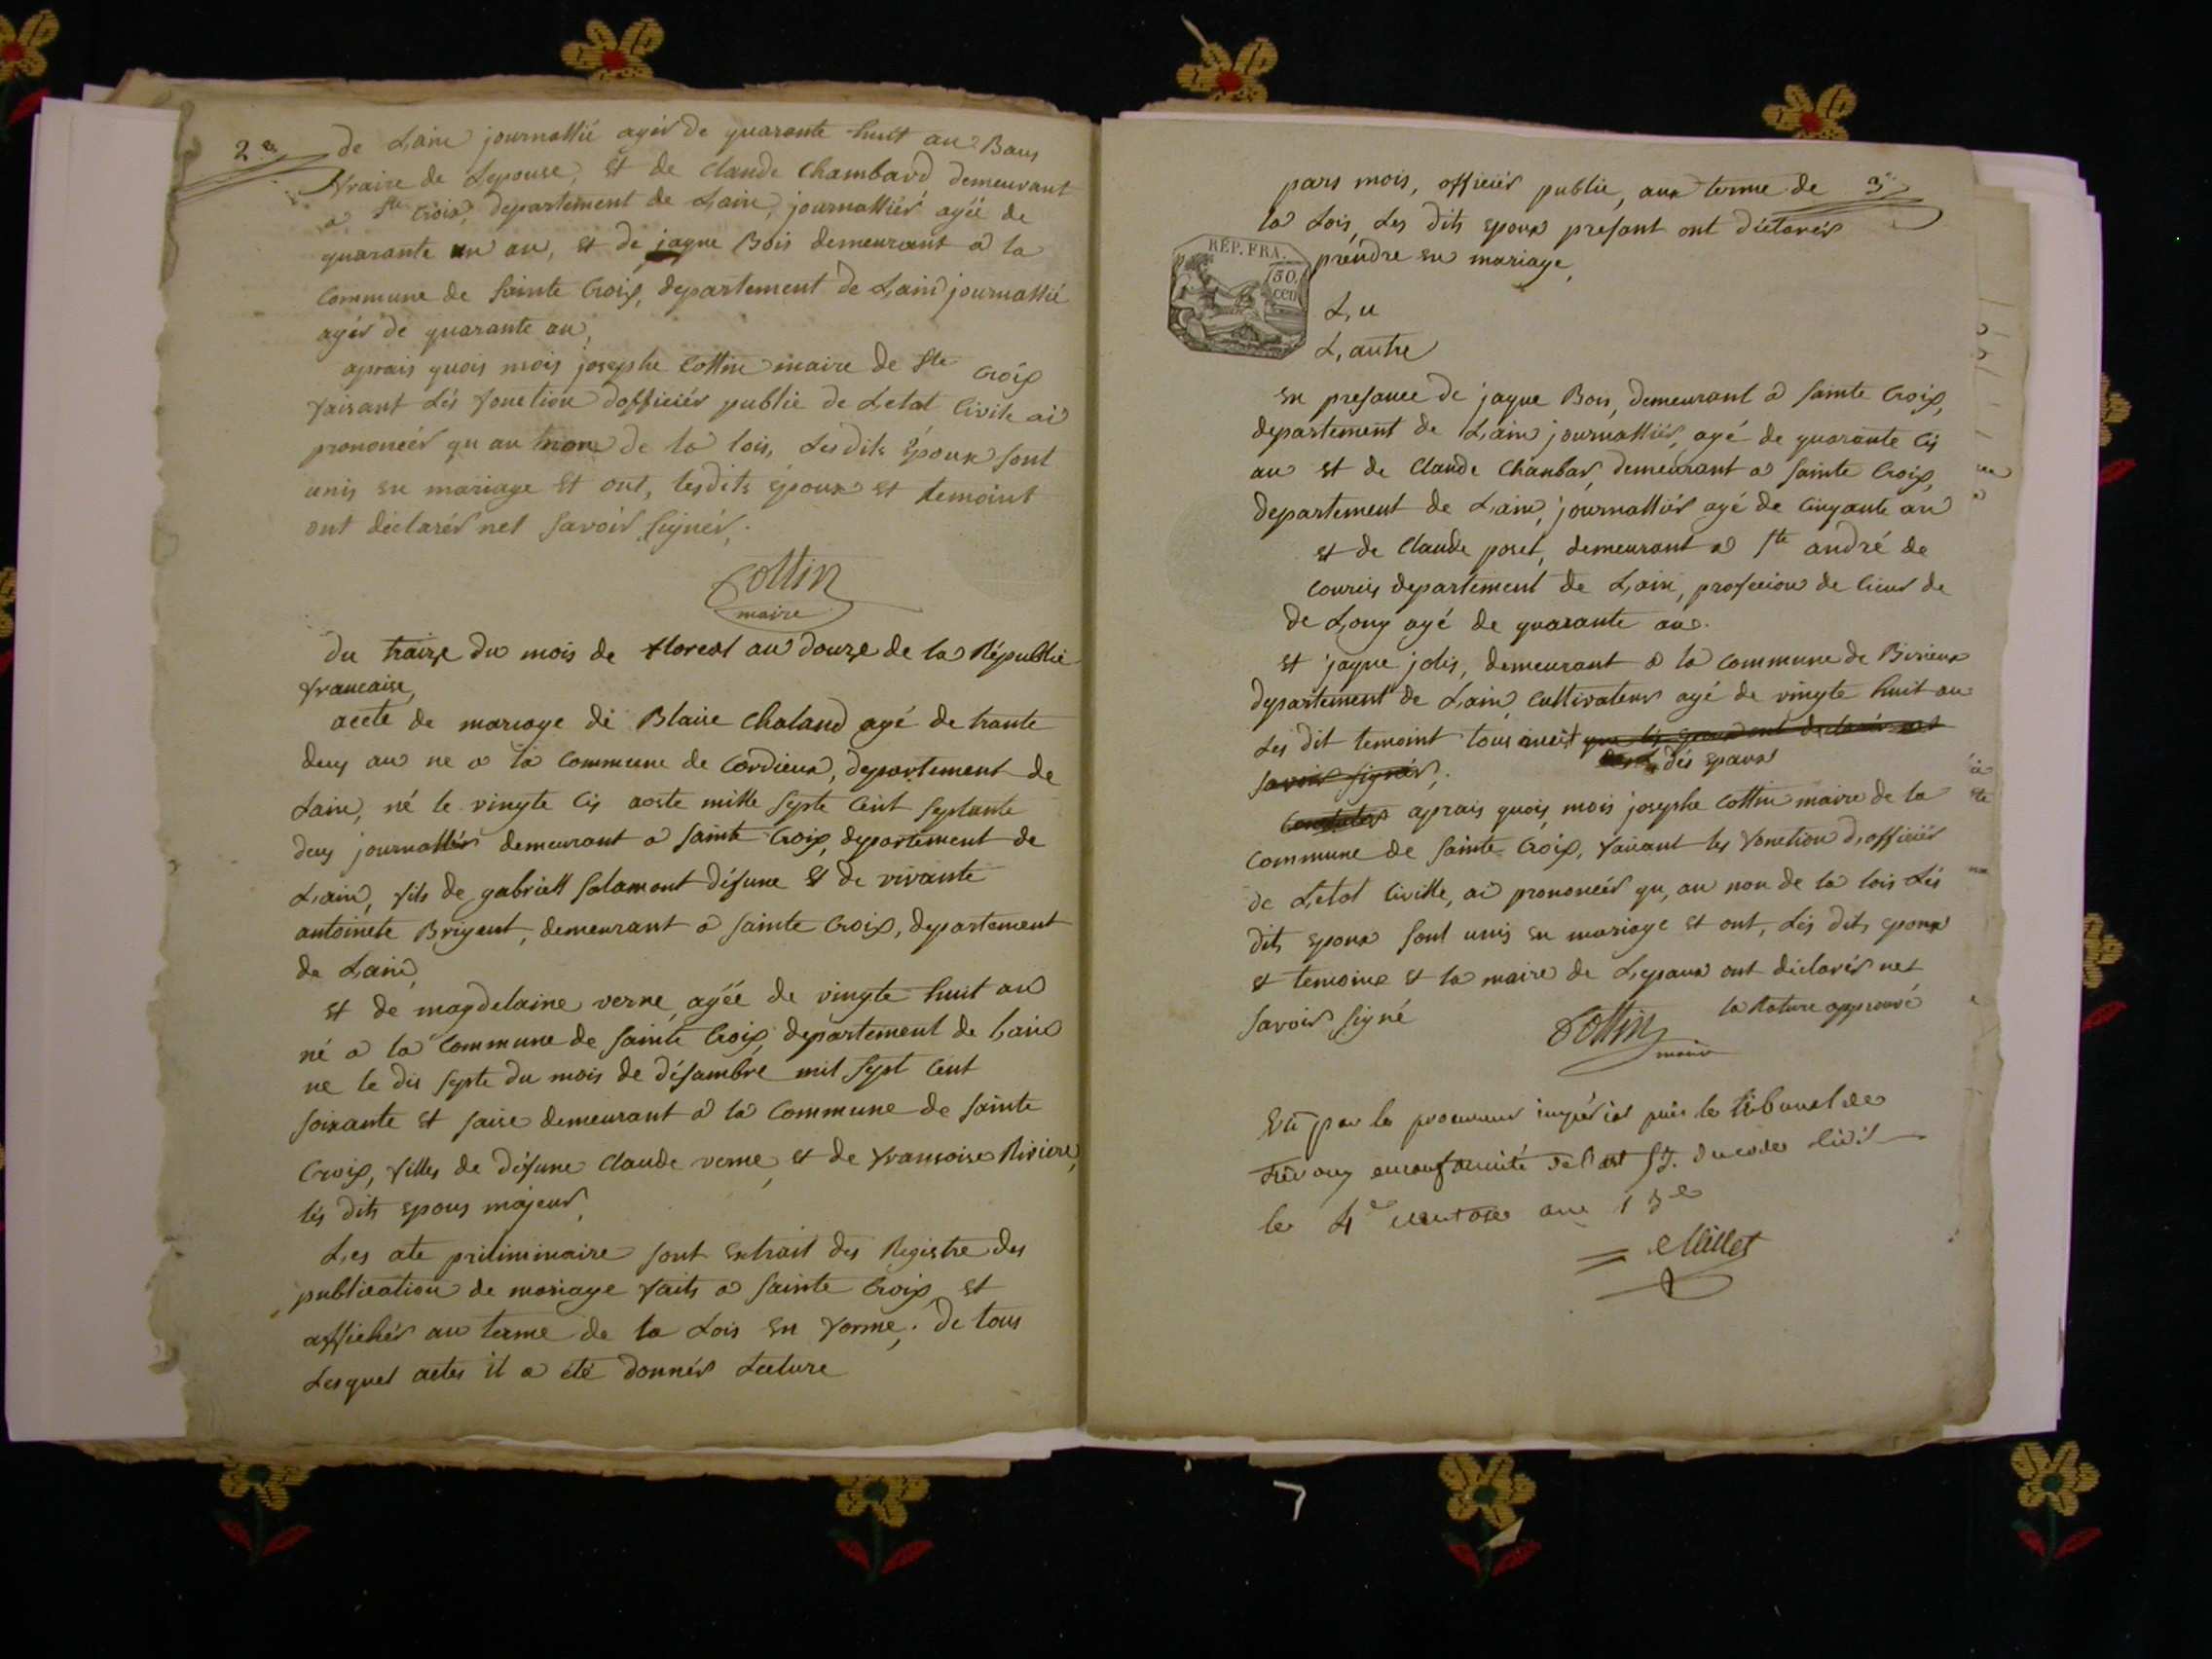 2e
de Lain journallié agér de quarante huit an Baus
fraire de Lepouse, et de Claude Chambard demeurant
a ste Croix, departement de Lain, journalliér agée de
quarante un an, et de jaque Bois demeurant a la
Commune de Sainte Croix, departement de Lain journallié
agér de quarante an,
aprais quois mois josephe Cottin maire de Ste Croix
faisant Lés fonction dofficiér public de Letat Civile ai
prononcér qu au nom de la lois, Lesdits Epoux sont
unis en mariage et ont, lesdits époux et temoint
ont déclarér net savoir signér.
Cottin
maire
du traize du mois de floreal an douze de la Républic
francaise,
acete de mariage de Blaise Chaland agé de trante
deux an ne a la Commune de Cordieux, departement de
Lain, né le vingte cis aoste mille septe Cent septante
deux journallér demeurant a Sainte Croix, departement de
Lain, fils de gabriell Salamont défune et de vivante
antoinete Brigent, demeurant a Sainte Croix, departement
de Lain,
et de magdelaine verne, agée de vingte huit an
né a la Commune de Sainte Croix, departement de Lain
ne le dis septe du mois de désambre mil sept Cent
soixante et saise demeurant a la Commune de Sainte
Croix, filles de défune Claude verne, et de fransoise Riviere,
lés dits epous majeur,
Les ate priliminaire sont extrait des Registre des
publication de mariage faits a Sainte Croix et
affichér au terme de la Lois en forme, de tous
Lesquel actes il a été donnér Lecture
pars mois, officiér public, aux terme de 3e
la Lois, Les dits epoux presant ont déclarér
RÉP. FRA.
50.
cen
prendre en mariage,
L, u
L, autre
En presance de jaque Bois, demeurant a Sainte Croix,
departement de Lain journalliér, agé de quarante cis
an et de Claude Chanbar, demeurant a Sainte Croix,
departement de Lain, journalliér agé de Cinqante an
et de Claude poset, demeurant a ste andré de
Courcis departement de Lain, profecion de Cieur de
de Long agé de quarante an.
et jaque jolis, demeurant a la Commune de Birieux
departement de Lain, Cultivateur agé de vingte huit an
Les dit temoint tous que les epoux ont declarér net
dés epaux
savoir signér,
aprais quois mois josephe Cottin maire de la
Commune de Sainte Croix, faisant les fonction d, officiér
de Letat Civille, ai prononcér qu, au non de la lois Lés
dits epoux sont unis en mariage et ont, Lés dits epoux
et temoine et la maire de Lepaux ont déclarér net
savoir signé
la Rature approuvé
Cottin
maire
Vu par le procureur impérial près le tribunal de
trévoux en conformité de l'art 53. du code Civil
le 4e ventose an 13e
Millet